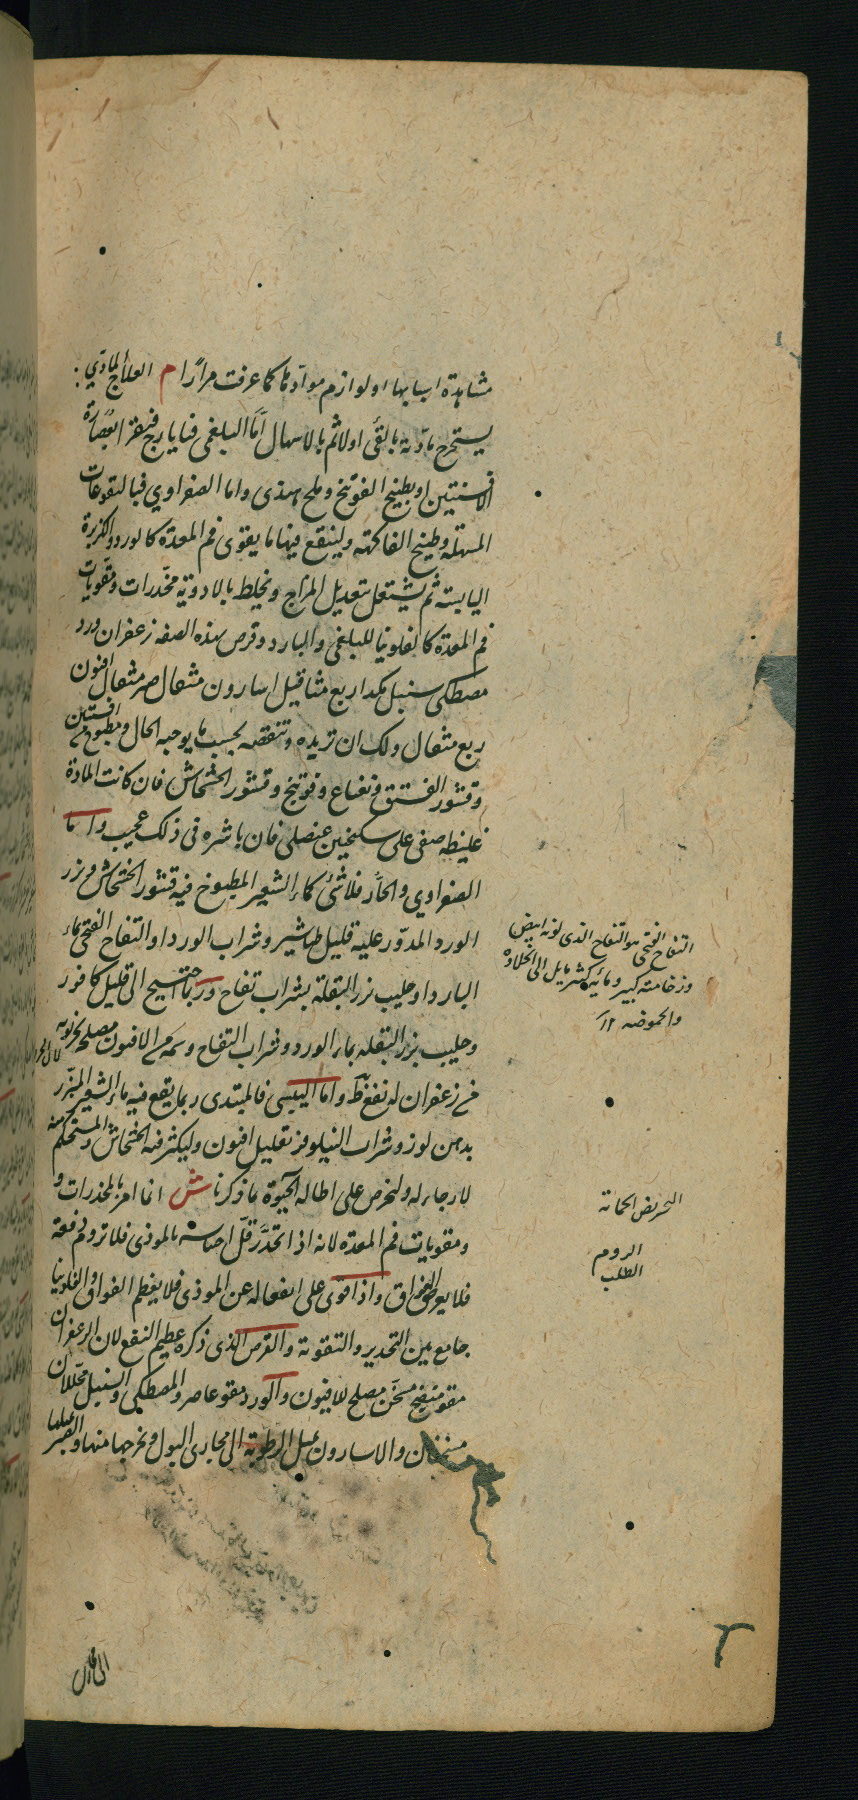 مشاهدة اسبابها او لوازم موادها كما عرفت مرارًا م العلاج المادي
يستخرج مادته بالقئ اولا ثم بالاسهال أمّا البلغمى فبايارج فيقرا بعصارة
الافسنتين او بطبيخ الفوتنج وملح هندى واما الصفراوى فبالنقوعات
المسهلة وطبيخ الفاكهة ولينقع فيها ما يقوى فم المعدة كالورد والكزبرة
اليابسة ثم يشتغل بتعديل المزاج ويخلط بالادوية مخدرات ومقويات
فم المعدة كالفلونيا للبلغمى والبارد وقرص بهذه الصفه زعفران ورد
مصطكى سنبل مكد اربع مثاقيل اسارون مثقال صبر مثقال افيون
ربع مثقال ولك ان تزيده وتنقصه بحسب ما يوجبه الحال ومطبوخ من افسنتين
وقشور الفستق ونعناع وفوتنج وقشور الخشخاش فان كانت المادة
غليظه صفى على سكنجبين عنصلى فان تاثيره فى ذلك عجيب واما
الصفراوى والحار فلا شئ كماء الشعير المطبوخ فيه قشور الخشخاش وبزر
الورد المدوّر عليه قليل طباشير وشراب الورد او التفاح الفتحى بماء
البارد او حليب بزر البقلة بشراب تفاح وربما احتيج الى قليل كافور
وحليب بزر البقله بماء الورد وشراب التفاح وسكر الافيون مصلح
من زعفران له نفع واما اليبسى فالمبتدى ربما ينفع فيه ماء الشعير المبزر
بدهن لوز وشراب النيلوفر بقليل افيون وليكثر فيه الخشخاش والمستحكم منه
لا رجاء له وليحرص على اطاله الحيوة بما ذكرنا ش انما امر بالمخدرات و
ومقويات فم المعده لانه اذا تخدّر قلّ احساسه بالموذى فلا تروم دفعه
فلا يعرض الفواق واذا قوى على انفعاله عن الموذى فلا يعظم الفواق والفلونيا
جامع بين التخدير والتقوية والقرص الذى ذكره عظيم النفع لان الزعفران
مقو منضج مسخن مصلح للافيون والورد مقو عاصر والمصطكى والسنبل محللان
مسخنان والاسارون يميل الرطوبة الى مجارى البول ويخرجها منها والصبر
التفاح الفتحى هو التفاح الذى لونه ابيض
وزخامته كبير ومائيه كثير مايل الى الحلاوه
والحموضه ١٢
التحريض الحمانه
الروم
الطلب